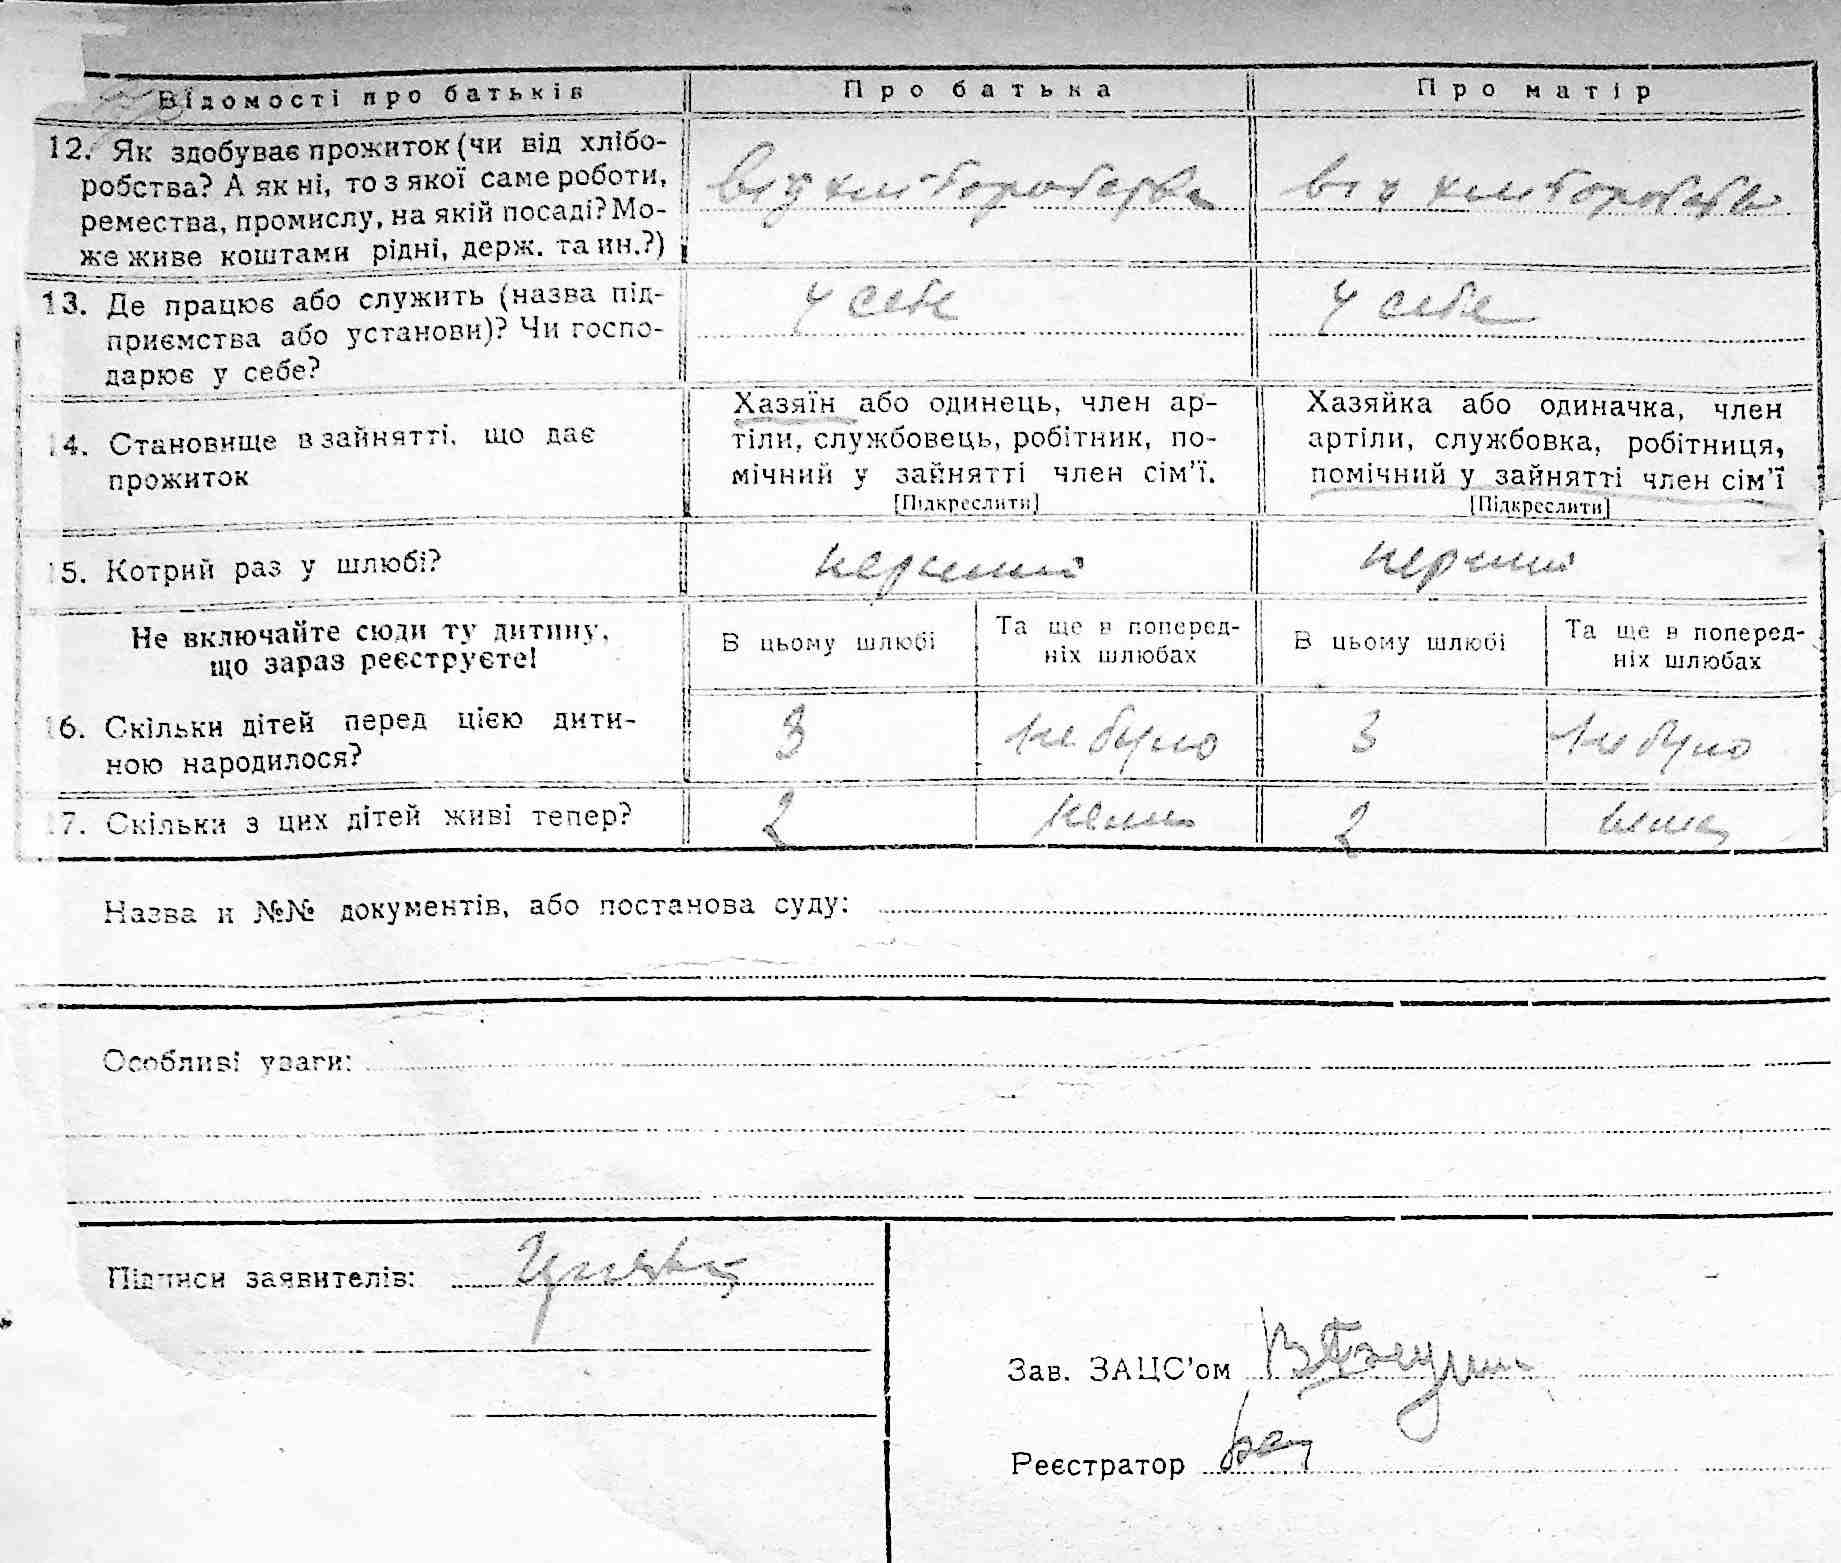 Відомості про батьків
Про батька
Про матір
12. Як здобуває прожиток (чи від хлібо-
робства? А як ні, то з якої саме роботи,
ремества, промислу, на якій посаді? Мо-
же живе коштами рідні, держ. та ин.?)
від хліборобства
від хліборобства
13. Де працює або служить (назва під-
приємства або установи)? Чи госпо-
дарює у себе?
у себе
у себе
14. Становище в зайнятті, що дає
прожиток
Хазяїн або одинець, член ар-
тіли, службовець, робітник, по-
мічний у зайнятті член сім'ї.
[Підкреслити]
Хазяйка або одиначка, член
артіли, службовка, робітниця,
помічний у зайнятті член сім'ї
[Підкреслити]
15. Котрий раз у шлюбі?
перший
перший
Не включайте сюди ту дитину,
що зараз реєструєте!
В цьому шлюбі
Та ще в поперед-
ніх шлюбах
В цьому шлюбі
Та ще в поперед-
ніх шлюбах
16. Скільки дітей перед цією дити-
ною народилося?
3
не було
3
не було
17. Скільки з цих дітей живі тепер?
2
нема
2
нема
Назва й №№ документів, або постанова суду:
Особливі уваги:
Підписи заявителів:
Зав. ЗАЦС'ом
Реєстратор